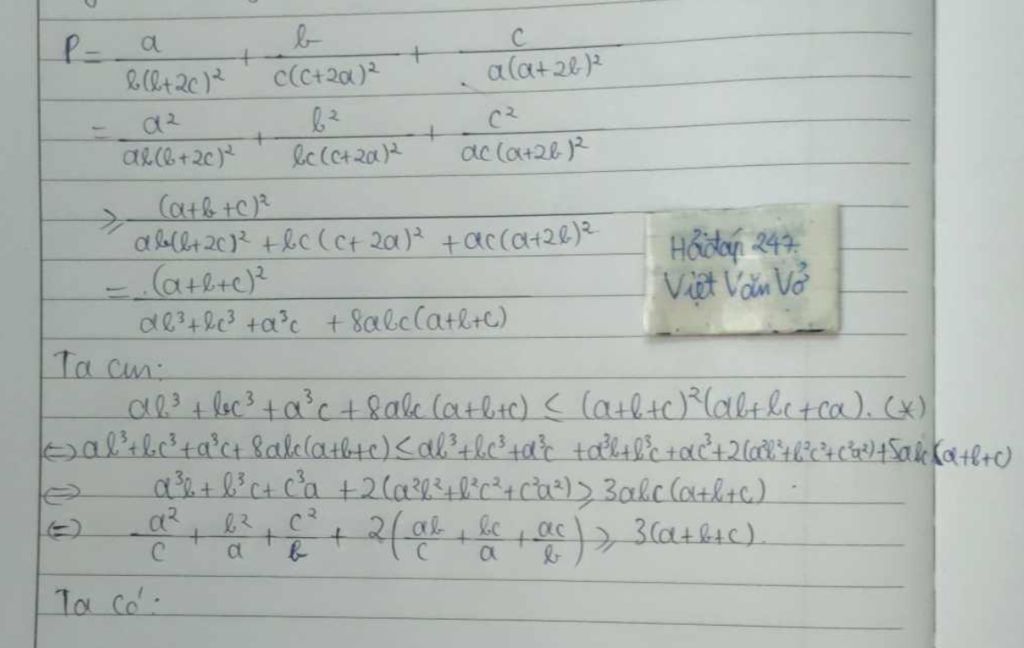 P = a/(b(b+2c)²) + b/(c(c+2a)²) + c/(a(a+2b)²)
= a²/(ab(b+2c)²) + b²/(bc(c+2a)²) + c²/(ac(a+2b)²)
≥ (a+b+c)²/(ab(b+2c)² + bc(c+2a)² + ac(a+2b)²)
Hỏi đáp 247
Việt Văn Vở
= (a+b+c)²/(ab³+bc³+a³c + 8abc(a+b+c))
Ta cm:
ab³+bc³+a³c+8abc(a+b+c) ≤ (a+b+c)²(ab+bc+ca). (*)
⇔ ab³+bc³+a³c+8abc(a+b+c) ≤ ab³+bc³+a³c +a³b+b³c+ac³+2(a²b²+b²c²+c²a²)+5abc(a+b+c)
⇔ a³b+b³c+c³a+2(a²b²+b²c²+c²a²) ≥ 3abc(a+b+c)
⇔ a²/c + b²/a + c²/b + 2(ab/c + bc/a + ac/b) ≥ 3(a+b+c).
Ta có: